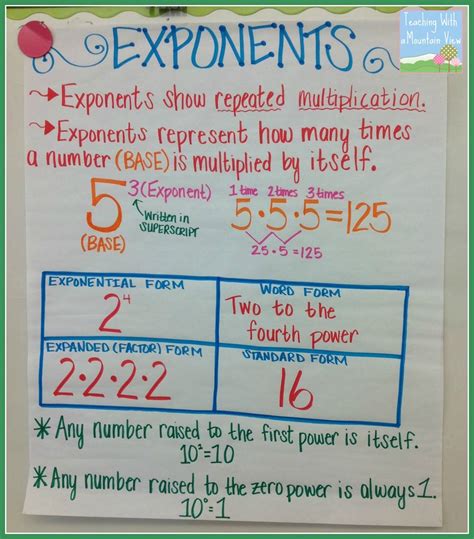 Teaching With
a Mountain View
EXPONENTS
→Exponents show repeated multiplication.
→Exponents represent how many times
a number (BASE) is multiplied by itself.
5³(Exponent)
Written in
SUPERSCRIPT
(BASE)
1 time 2 times 3 times
5·5·5=125
25·5=125
EXPONENTIAL FORM
2⁴
WORD FORM
Two to the
fourth power
EXPANDED (FACTOR) FORM
2·2·2·2
STANDARD FORM
16
*Any number raised to the first power is itself.
10¹=10
*Any number raised to the zero power is always 1.
10⁰=1